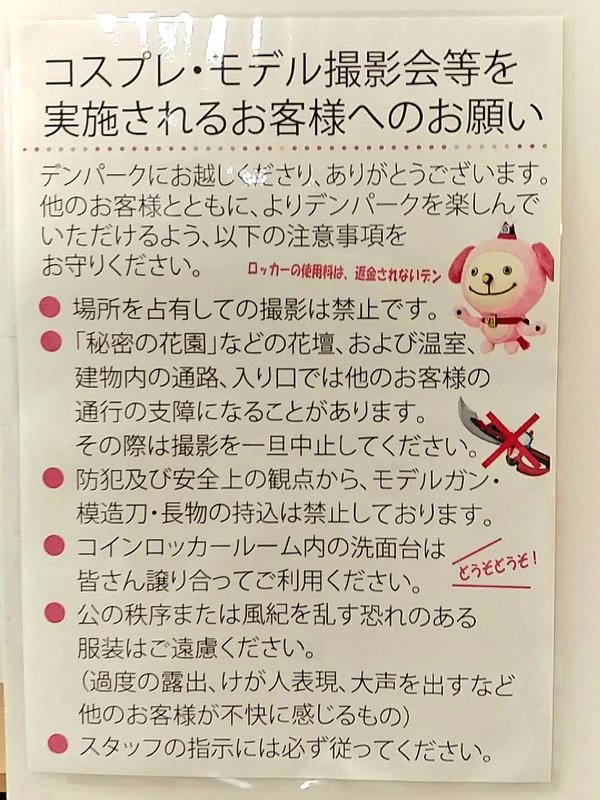 コスプレ・モデル撮影会等を
実施されるお客様へのお願い
デンパークにお越しくださり、ありがとうございます。
他のお客様とともに、よりデンパークを楽しんで
いただけるよう、以下の注意事項を
お守りください。
ロッカーの使用料は、返金されないデン
● 場所を占有しての撮影は禁止です。
● 「秘密の花園」などの花壇、および温室、
建物内の通路、入り口では他のお客様の
通行の支障になることがあります。
その際は撮影を一旦中止してください。
● 防犯及び安全上の観点から、モデルガン・
模造刀・長物の持込は禁止しております。
● コインロッカールーム内の洗面台は
皆さん譲り合ってご利用ください。
どうぞどうぞ！
● 公の秩序または風紀を乱す恐れのある
服装はご遠慮ください。
（過度の露出、けが人表現、大声を出すなど
他のお客様が不快に感じるもの）
● スタッフの指示には必ず従ってください。